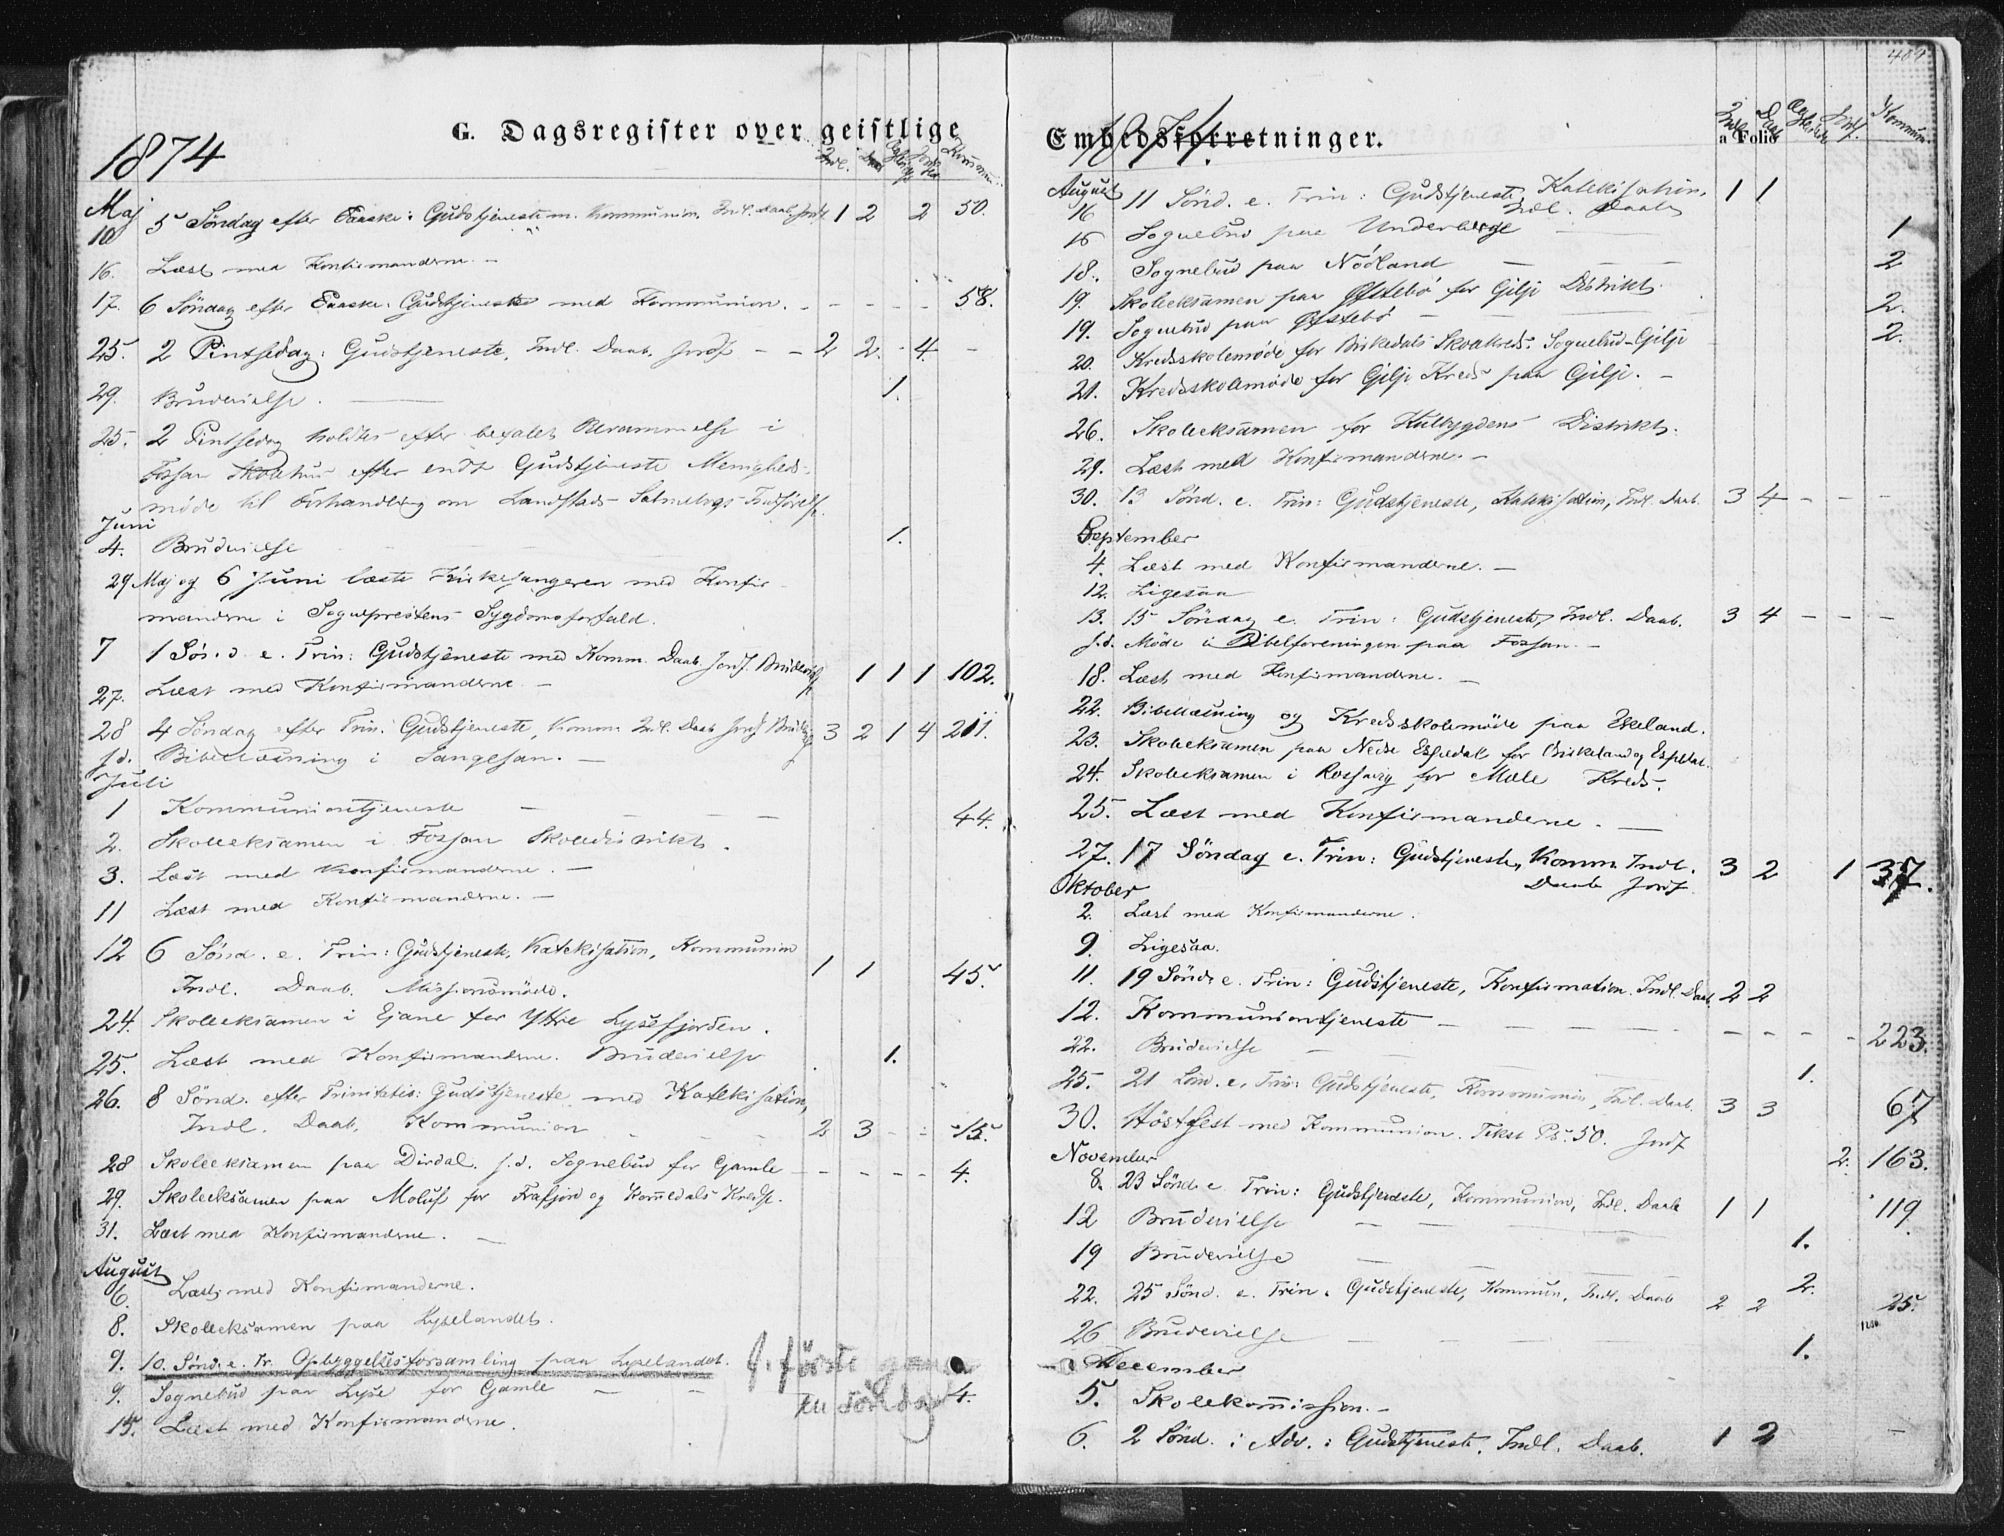 G. Dagsregister over geistlige
1874
Indl. Daab Ægtev. Jordf. Kommun.
Maj
10 5 Söndag efter Paaske: Gudstjeneste m. Kommunion. Indl. Daab. Jordf 1 2 2 50.
16. Læst med Konfirmanderne. –
17. 6 Söndag efter Paaske: Gudstjeneste med Kommunion. – – – – 58.
25. 2 Pintsedag: Gudstjeneste, Indl. Daab. Jordf – – 2 2. – 4. –
29. Brudevielse. 1.
25. 2 Pintsedag holdtes efter befalet Berammelse i
Fossan Skolehus efter endt Gudstjeneste Menigheds-
möde til Forhandling om Landstads Salmebogs Indförelse.
Juni
4. Brudevielse 1.
29 Maj og 6 Juni læste Kirkesangeren med Konfir-
manderne i Sognepræstens Sygdomsforfald.
7 1 Sönd. e. Trin: Gudstjeneste med Komm. Daab. Jordf. Brudevielse 1 1 1 102.
27. Læst med Konfirmanderne. –
28 4 Söndag efter Trin. Gudstjeneste, Komm. Indl. Daab Jordf Brudev. 3 2 1 4 211.
s.d. Bibellæsning i Sangesan. –
Juli
1 Kommuniontjeneste – – – – 44.
2. Skoleeksamen i Fossan Skoledistrikt.
3. Læst med Konfirmanderne. –
11 Læst med Konfirmanderne. –
12 6 Sönd. e. Trin: Gudstjeneste, Katekisation, Kommunion
Indl. Daab. Missionsmöde. 1 1 45.
24. Skoleeksamen i Ejane for Yttre Lysefjorden.
25. Læst med Konfirmanderne. Brudevielse 1.
26. 8 Sönd. efter Trinitatis: Gudstjeneste med Katekisation,
Indl. Daab. Kommunion 2 3 – – 15.
28 Skoleeksamen paa Dirdal. s.d. Sognebud for Gamle – – – – 4.
29. Skoleeksamen paa Moluf for Frafjord og Kommedals Kreds.
31. Læst med Konfirmanderne. –
August
6. Læst med Konfirmanderne.
8. Skoleeksamen paa Lyselandet.
9. 10. Sönd. e. Tr. Opbyggelsesforsamling paa Lyselandet. förste gang
9. Sognebud paa Lyse for Gamle – – en söndag 4.
15. Læst med Konfirmanderne.
489
Embedsforretninger.
1874.
a Folio
Indl. Daab Ægtev. Jordf. Kommun.
August
16 11 Sönd. e. Trin: Gudstjeneste, Katekisation, 1 1
Indl. Daab
16 Sognebud paa Underberge 1
18. Sognebud paa Nöoland – – – 2
19. Skoleeksamen paa Östebö for Gilje Distrikt.
19. Sognebud paa Östebö – – – 2.
20. Kredsskolemöde for Birkedals Skolekreds. Sognebud Gilje 2.
21. Kredsskolemöde for Gilje Kreds paa Gilje. –
26. Skoleeksamen for Hulbygdens Distrikt.
29. Læst med Konfirmanderne. –
30. 13 Sönd. e. Trin: Gudstjeneste, Katekisation, Indl. Daab. 3 4 – – –
September
4. Læst med Konfirmanderne. –
12. Ligesaa
13. 15 Söndag e. Trin: Gudstjeneste, Indl. Daab. 3 4 – – –
s.d. Möde i Bibelforeningen paa Fossan. –
18. Læst med Konfirmanderne. –
22. Bibellæsning og Kredsskolemöde paa Eseland.
23. Skoleeksamen paa Nedre Espedal for Birkeland og Espedal.
24. Skoleeksamen i Rossavig for Mæle Kreds.
25. Læst med Konfirmanderne. –
27. 17 Söndag e. Trin: Gudstjeneste, Komm. Indl. 3 2 1 37.
Daab Jordf
Oktober
2. Læst med Konfirmanderne.
9. Ligesaa.
11. 19 Sönd. e. Trin: Gudstjeneste, Konfirmation. Indl. Daab 2 2
12. Kommuniontjeneste – – – – 223.
22. Brudevielse – 1.
25. 21 Sönd. e. Trin: Gudstjeneste, Kommunion, Indl. Daab. 3 3 67
30. Höstfest med Kommunion. Tekst Ps. 50. Jordf 2. 163.
November
8. 23 Sönd. e Trin: Gudstjeneste, Kommunion, Indl. Daab 1 1 119
12 Brudevielse – – 1.
19 Brudevielse – 2.
22. 25 Sönd. e. Trin. Gudstjeneste, Kommun, Indl. Daab 2 2 25.
26 Brudevielse – – 1.
December
5. Skolekommission. –
6. 2 Sönd. i Adv.: Gudstjeneste. Indl. Daab. 1 2 –